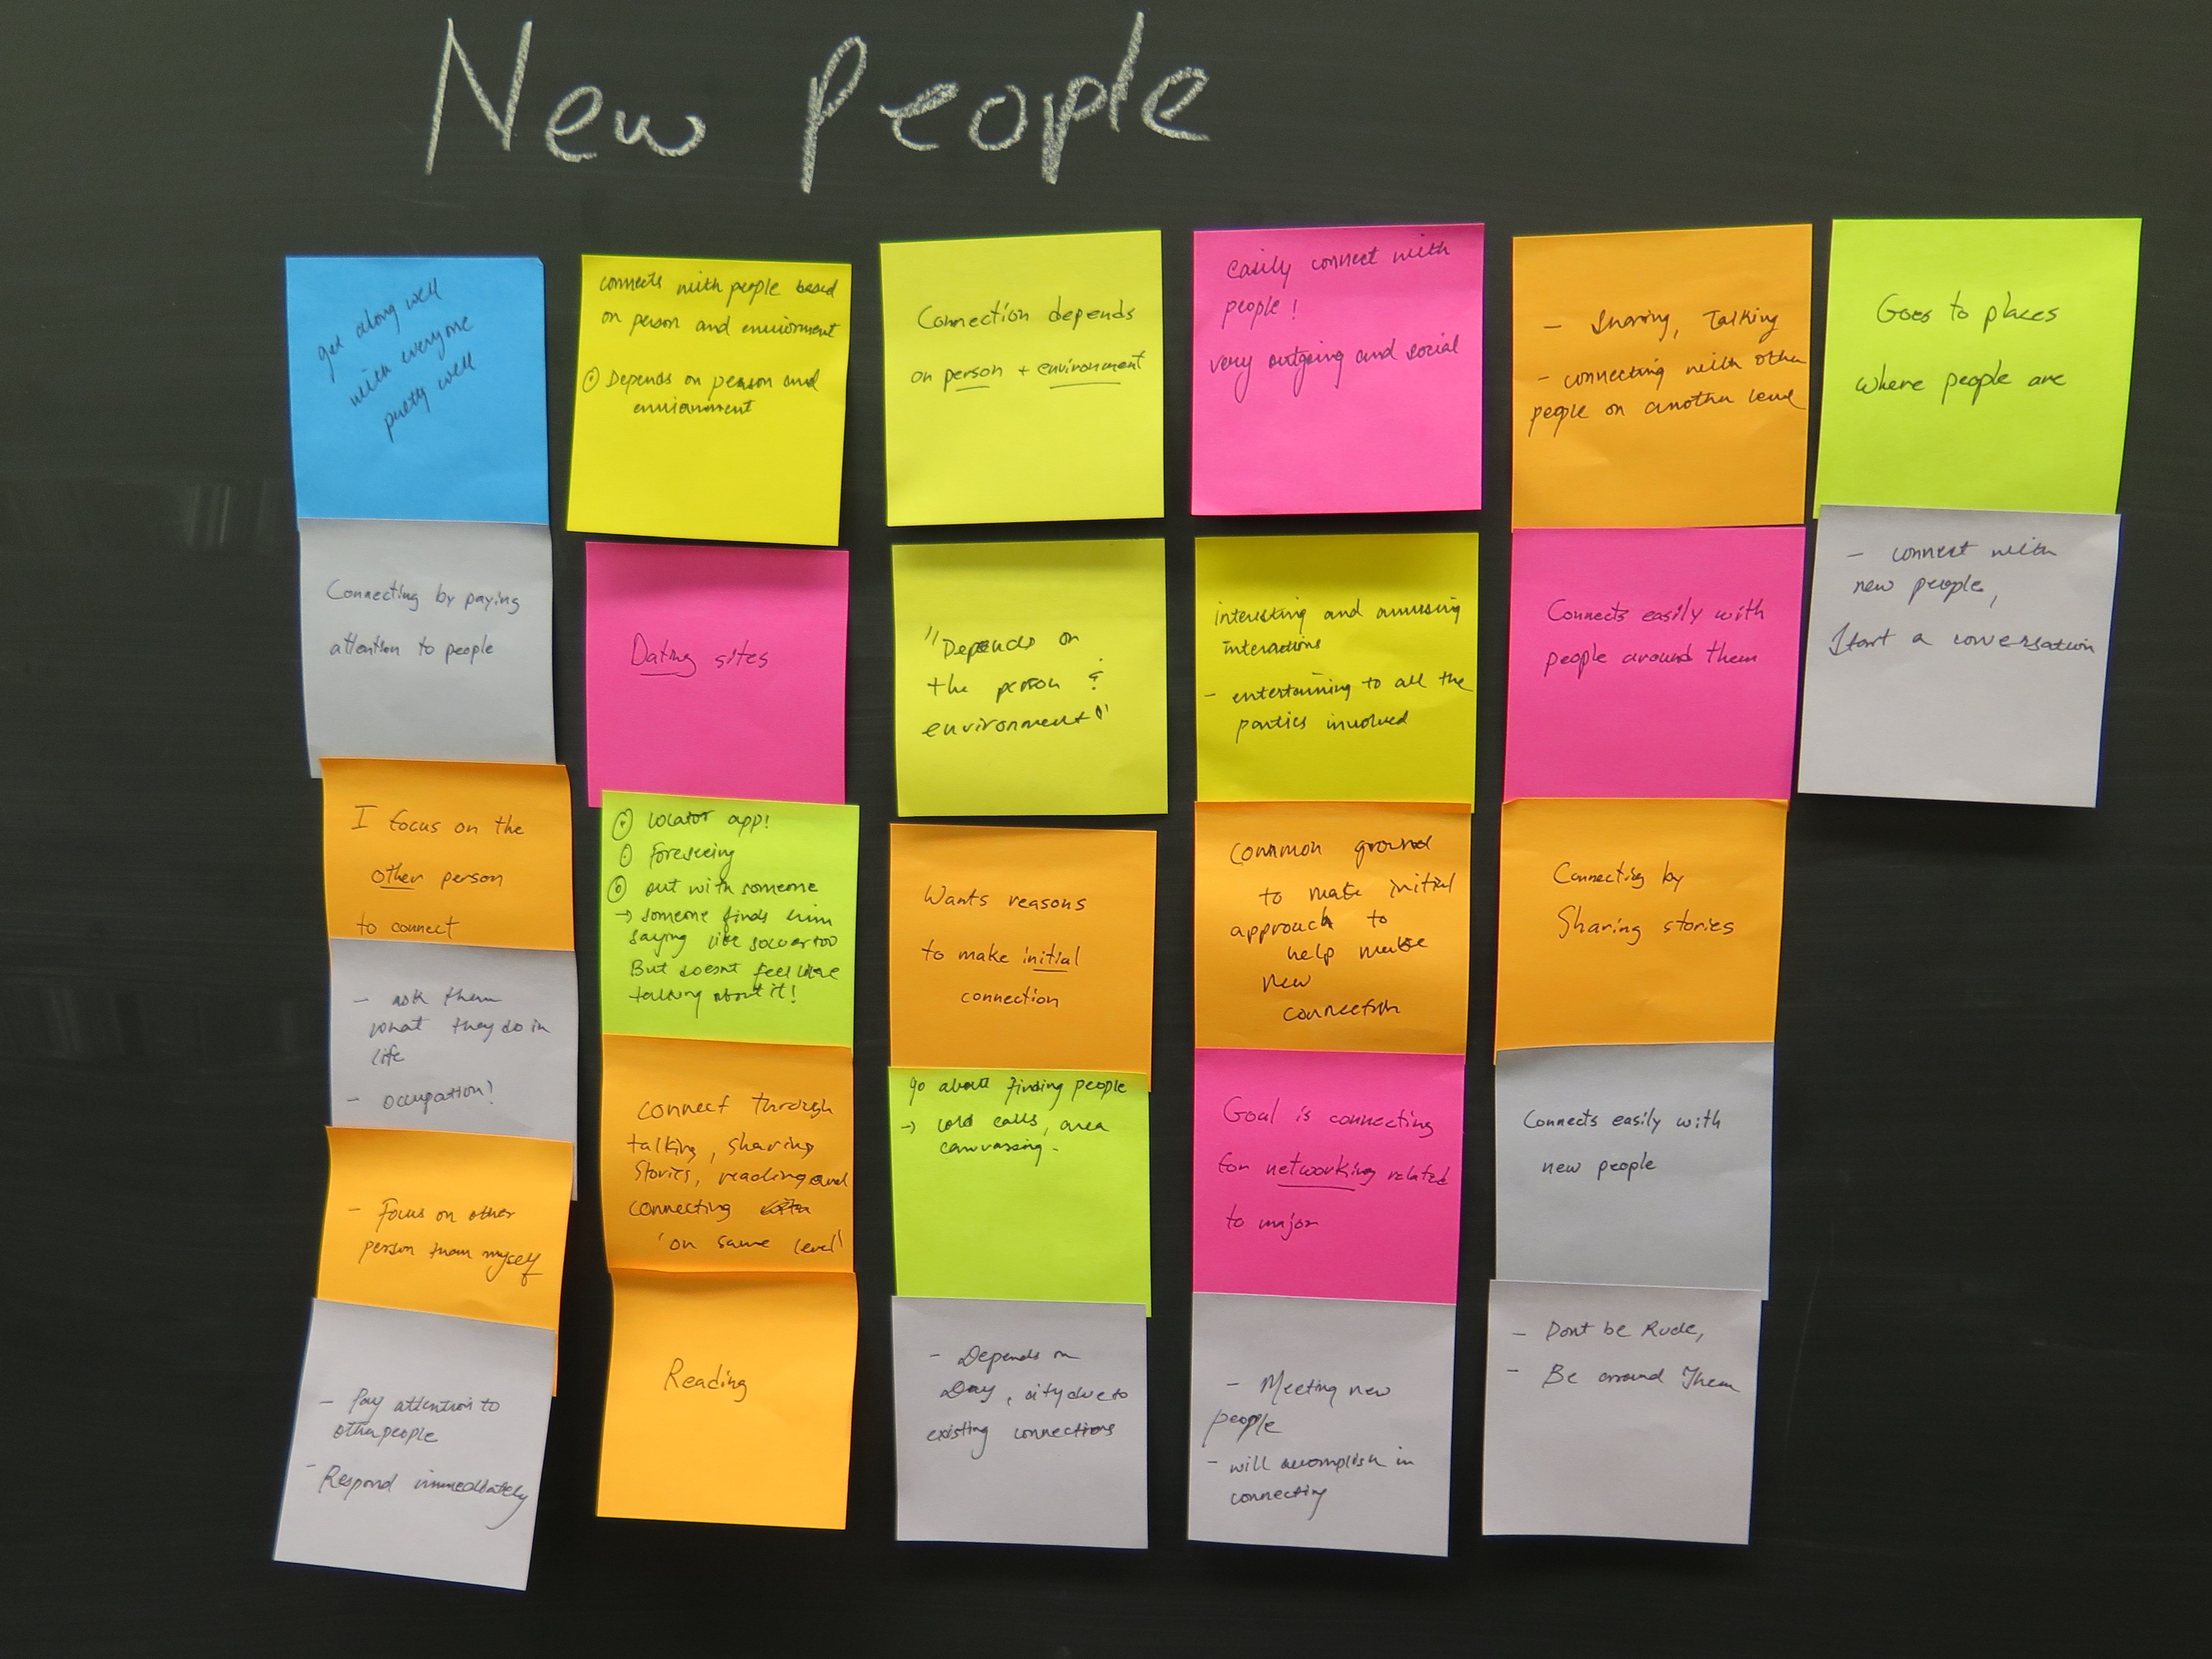 New People
get along well
with everyone
pretty well
Connecting by paying
attention to people
I focus on the
other person
to connect
- ask them
what they do in
life
- occupation!
- Focus on other
person than myself
- Pay attention to
other people
- Respond immediately
connects with people based
on person and enviornment
Depends on person and
enviornment
Dating sites
locator app!
Foreseeing
out with someone
→ someone finds him
saying like
But doesnt feel like
talking about it!
connect through
talking, sharing
stories, reading and
connecting
'on same level'
Reading
Connection depends
on person + environment
"Depends on
the person &
environment"
Wants reasons
to make initial
connection
go about finding people
→ cold calls, area
canvassing-
- Depends on
Day, city due to
existing connections
easily connect with
people!
very outgoing and social
interesting and amusing
interactions
- entertaining to all the
parties involved
common ground
to make initial
approach to
help make
new
connection
Goal is connecting
for networking related
to major
- Meeting new
people
- will accomplish in
connecting
- Sharing, Talking
- connecting with other
people on another level
Connects easily with
people around them
Connecting by
Sharing stories
Connects easily with
new people
- Dont be Rude,
- Be around Them
Goes to places
where people are
- connect with
new people,
Start a conversation